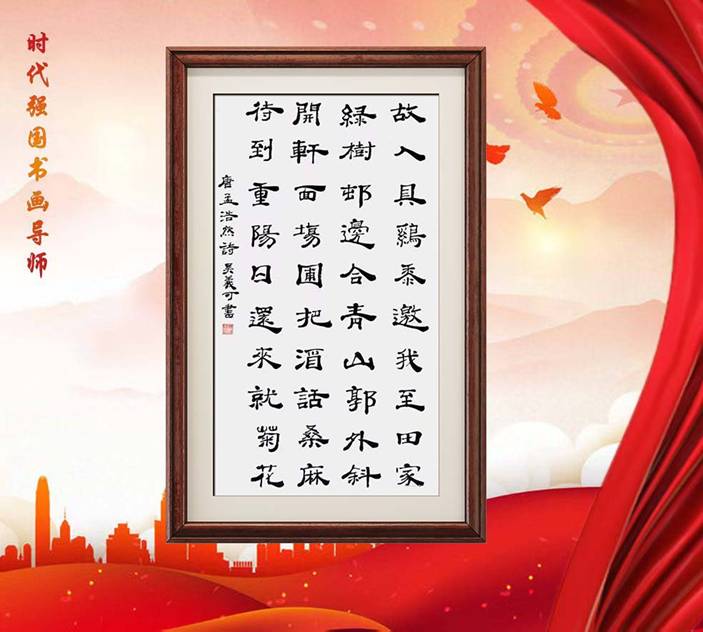 时代强国书画导师
故人具鷄黍邀我至田家
緑樹邨邊合青山郭外斜
開軒面場圃把酒話桑麻
待到重陽日還來就菊花
唐孟浩然詩 吴義可書